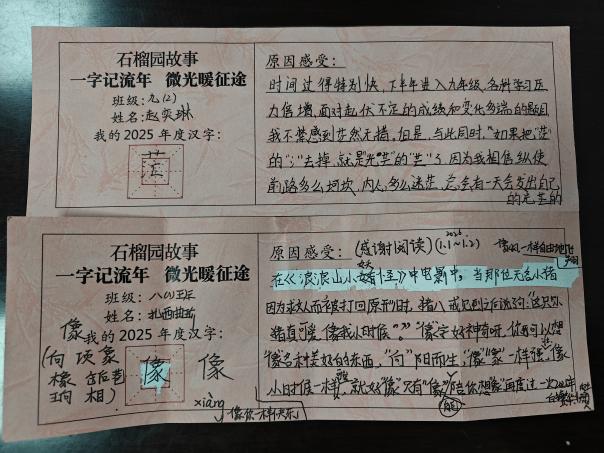 石榴园故事
一字记流年 微光暖征途
班级:九(2)
姓名:赵奕琳
我的2025年度汉字:
茫
原因感受:
时间过得特别快,下半年进入九年级,各科学习压
力倍增,面对起伏不定的成绩和变化多端的题目
我不禁感到茫然无措,但是,与此同时,"如果把"茫"
的"氵"去掉,就是"光芒"的"芒"了,因为我相信纵使
前路多么坎坷,内心多么迷茫,总会有一天会发出自己
的光芒的
石榴园故事
一字记流年 微光暖征途
班级:八(1)班
姓名:扎西曲
像 我的2025年度汉字:
(向 项 象
橡
响 相)
像
像
xiàng
像你一样快乐
原因感受:(感谢阅读)(1.1~1.2)
2026
像风一样自由
在《浪浪山小妖怪》中电影中,当那位无名小猪
因为求人而被打回原形时,猪八戒见到之后说了句:"这只小
猪真可爱,像我小时候。""像"字好神奇呀,你我可以想
像各种美好的东西,"向"阳而生,像"象"一样强壮,像
小时候一样,就好"像"只有"像"陪你想象再度过一次
能